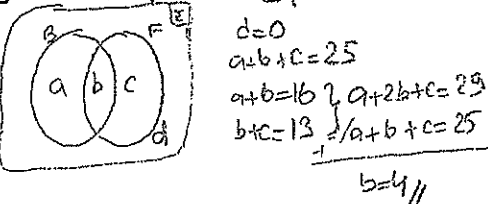 B F E
a b c
d
d=0
a+b+c=25
a+b=16 } a+2b+c=29
b+c=13 -/a+b+c=25
b=4//